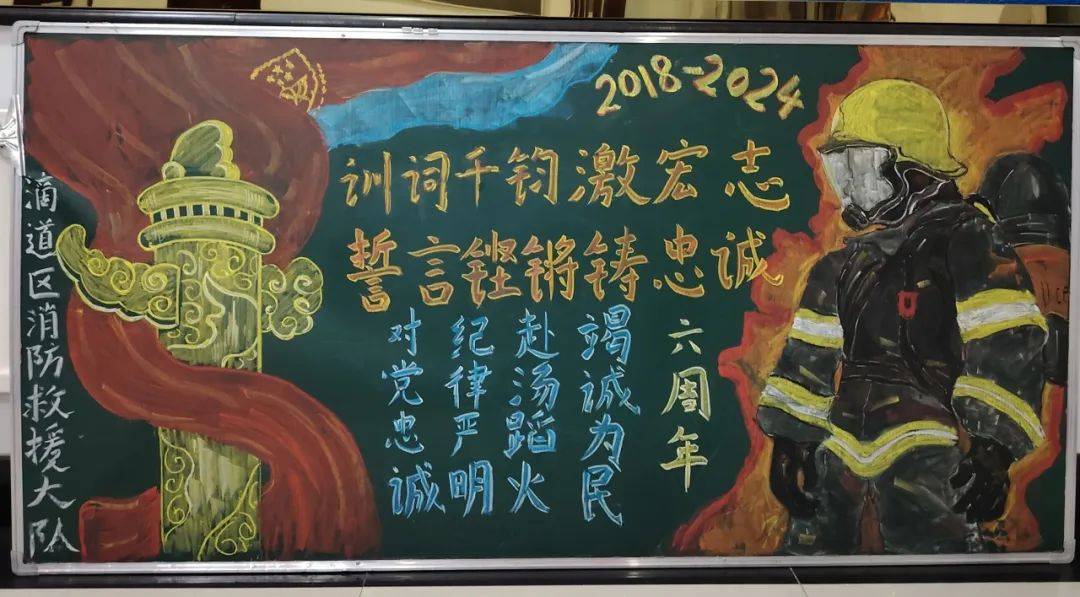 2018-2024
训词千钧激宏志
誓言铿锵铸忠诚
六周年
对党忠诚
纪律严明
赴汤蹈火
竭诚为民
滴道区消防救援大队